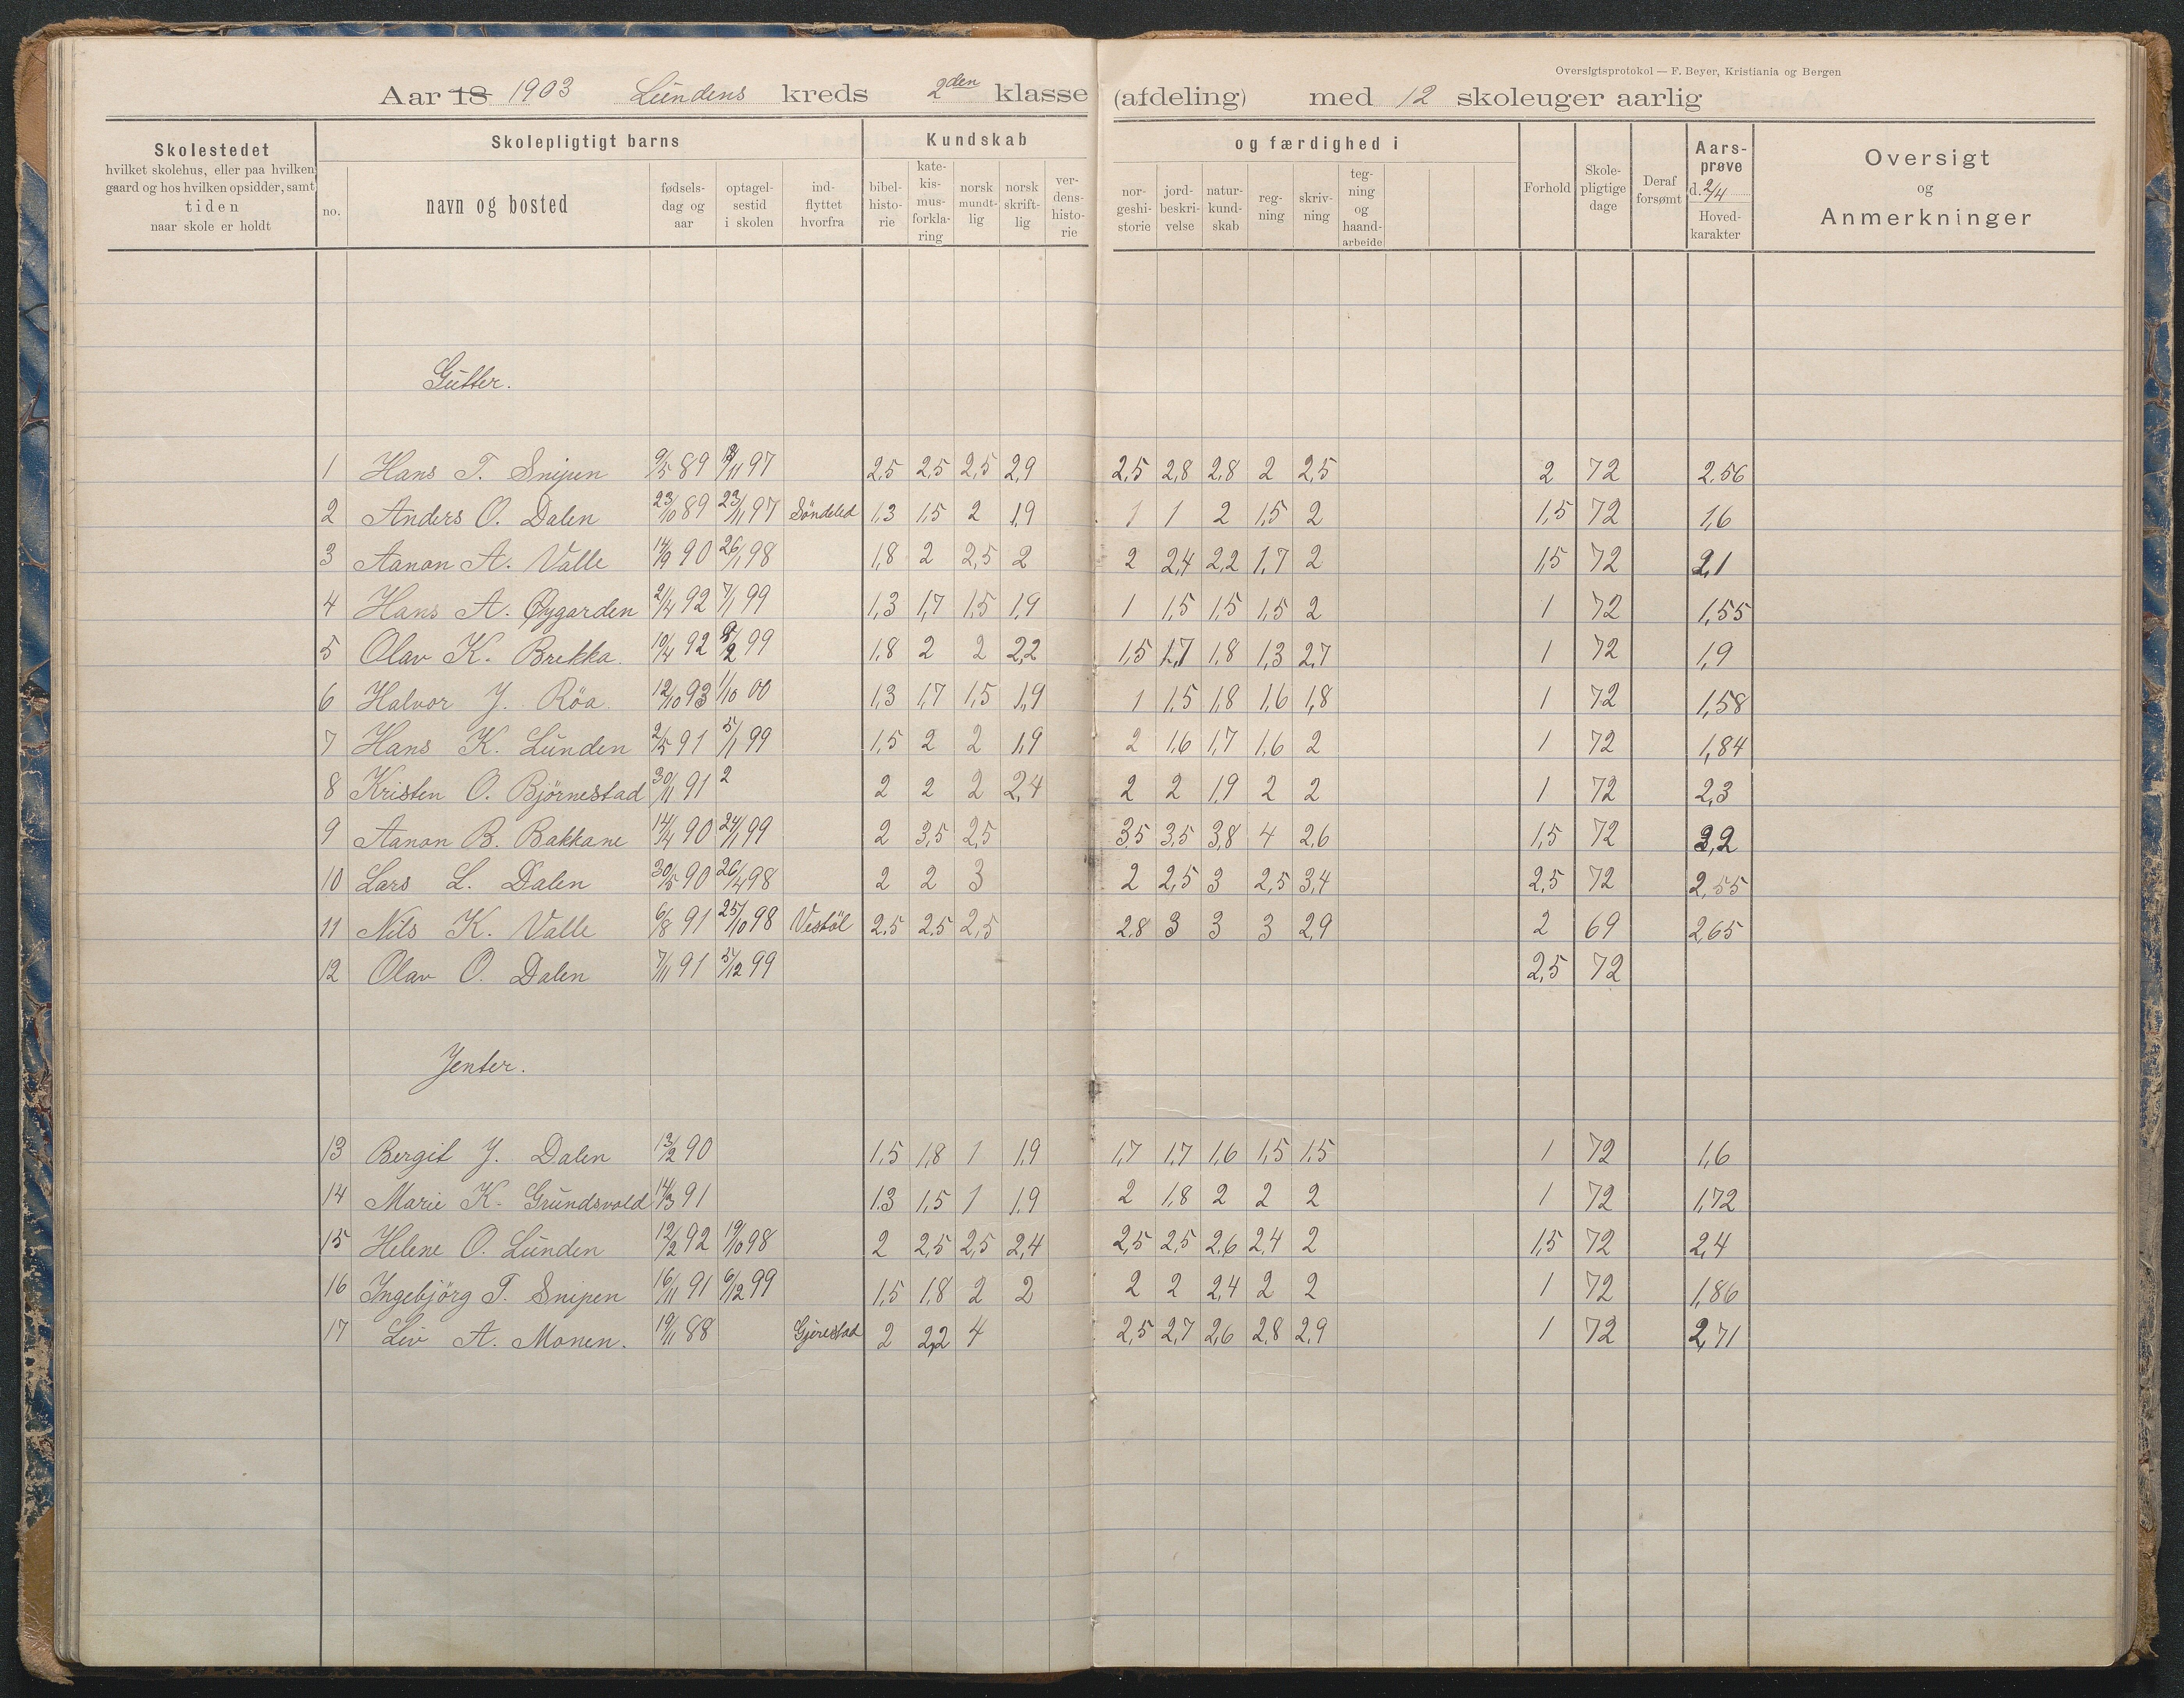 Oversigtsprotokol — F. Beyer, Kristiania og Bergen
Aar 18 1903 Lundens kreds 2den klasse (afdeling) med 12 skoleuger aarlig
Skolestedet
hvilket skolehus, eller paa hvilken
gaard og hos hvilken opsidder, samt
tiden
naar skole er holdt
Skolepligtigt barns
no.
navn og bosted
fødsels-
dag og
aar
optagel-
sestid
i skolen
ind-
flyttet
hvorfra
Kundskab
bibel-
histo-
rie
kate-
kis-
mus-
forkla-
ring
norsk
mundt-
lig
norsk
skrift-
lig
ver-
dens-
histo-
rie
og færdighed i
nor-
geshi-
storie
jord-
beskri-
velse
natur-
kund-
skab
reg-
ning
skriv-
ning
teg-
ning
og
haand-
arbeide
Forhold
Skole-
pligtige
dage
Deraf
forsømt
Aars-
prøve
d. 2/4
Hoved-
karakter
Oversigt
og
Anmerkninger
Gutter.
1 Hans T. Snipen 9/5 89 /11 97 2,5 2,5 2,5 2,9 2,5 2,8 2,8 2 2,5 2 72 2,56
2 Anders O. Dalen 23/10 89 23/11 97 Söndeled 1,3 1,5 2 1,9 1 1 2 1,5 2 1,5 72 1,6
3 Aanon A. Valle 14/9 90 26/1 98 1,8 2 2,5 2 2 2,4 2,2 1,7 2 1,5 72 2,1
4 Hans A. Øygarden 2/4 92 7/1 99 1,3 1,7 1,5 1,9 1 1,5 1,5 1,5 2 1 72 1,55
5 Olav K. Brekka. 10/4 92 /2 99 1,8 2 2 2,2 1,5 1,7 1,8 1,3 2,7 1 72 1,9
6 Halvor J. Röa. 12/10 93 1/10 00 1,3 1,7 1,5 1,9 1 1,5 1,8 1,6 1,8 1 72 1,58
7 Hans K. Lunden 2/5 91 5/1 99 1,5 2 2 1,9 2 1,6 1,7 1,6 2 1 72 1,84
8 Kristen O. Björnestad 30/11 91 2 2 2 2 2,4 2 2 1,9 2 2 1 72 2,3
9 Aanon B. Bakkane 14/4 90 24/1 99 2 3,5 2,5 3,5 3,5 3,8 4 2,6 1,5 72 3,2
10 Lars L. Dalen 30/5 90 26/4 98 2 2 3 2 2,5 3 2,5 3,4 2,5 72 2,55
11 Nils K. Valle 6/8 91 25/10 98 Vestöl 2,5 2,5 2,5 2,8 3 3 3 2,9 2 69 2,65
12 Olav O. Dalen 7/11 91 5/12 99 2,5 72
Jenter.
13 Bergit J. Dalen 13/2 90 1,5 1,8 1 1,9 1,7 1,7 1,6 1,5 1,5 1 72 1,6
14 Marie K. Grundsvold 14/3 91 1,3 1,5 1 1,9 2 1,8 2 2 2 1 72 1,72
15 Helene O. Lunden 12/2 92 19/10 98 2 2,5 2,5 2,4 2,5 2,5 2,6 2,4 2 1,5 72 2,4
16 Ingebjörg T. Snipen 16/11 91 6/12 99 1,5 1,8 2 2 2 2 2,4 2 2 1 72 1,86
17 Liv A. Monen. 19/11 88 Gjerestad 2 2,2 4 2,5 2,7 2,6 2,8 2,9 1 72 2,71